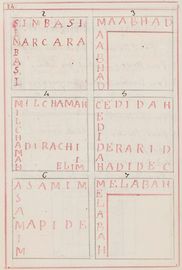 2
SINBASI
I
NARCARA
B
A
S
I
3
MAABHAD
A
A
B
H
A
D
4
MILCHAMAH
I
L
C
H
A
M
ADIRACHI
H ELIM
5
CEDIDAH
E
D
I
DERARID
A
HADIDEC
6
ASAMIM
S
A
MAPIDE
I
M
7
MELABAH
E
L
A
B
A
H